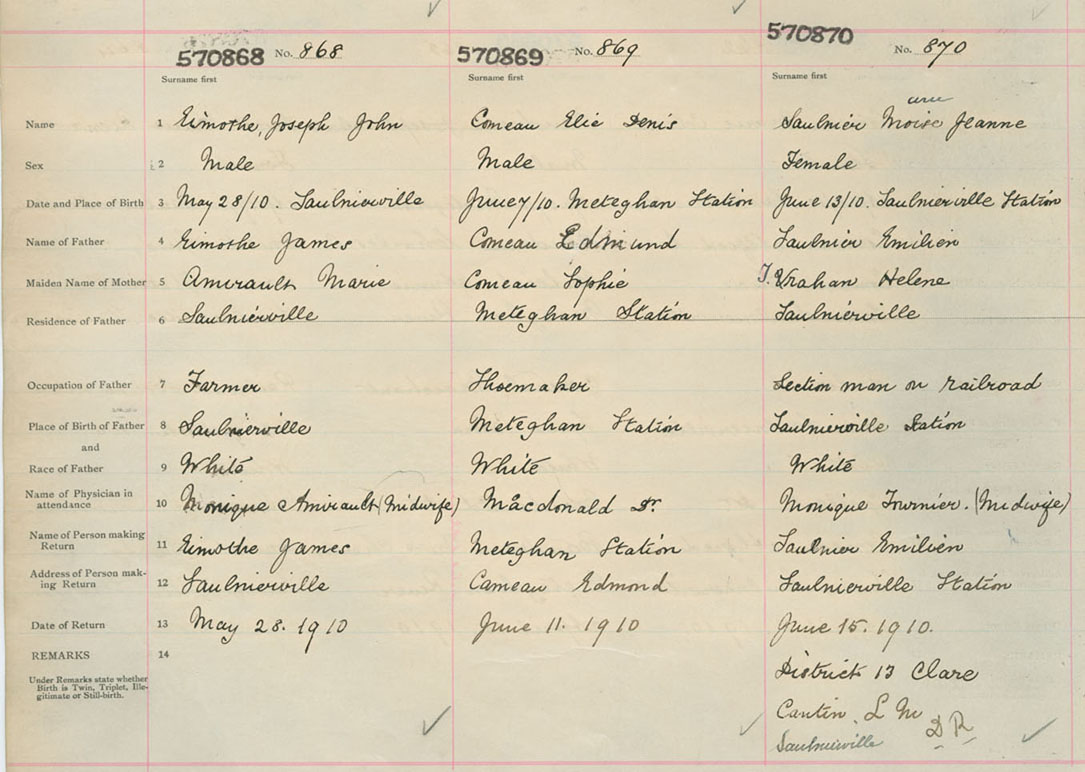 570868 No. 868 570869 No. 869 570870 No. 870
Surname first Surname first Surname first
arie
Name 1 Eimothe, Joseph John Comeau Elie Denis Saulnier Moise Jeanne
Sex 2 Male Male Female
Date and Place of Birth 3 May 28/10. Saulnierville June 7/10. Meteghan Station June 13/10. Saulnierville Station
Name of Father 4 Eimothe James Comeau Edmund Saulnier Emilien
Maiden Name of Mother 5 Amirault Marie Comeau Sophie Helene
Residence of Father 6 Saulnierville Meteghan Station Saulnierville
Occupation of Father 7 Farmer Shoemaker Section man on railroad
Place of Birth of Father 8 Saulnierville Meteghan Station Saulnierville Station
and
Race of Father 9 White White White
Name of Physician in
attendance 10 Monique Amirault (Midwife) Macdonald Dr. Monique Fournier. (Midwife)
Name of Person making
Return 11 Eimothe James Meteghan Station Saulnier Emilien
Address of Person mak-
ing Return 12 Saulnierville Comeau Edmond Saulnierville Station
Date of Return 13 May 28. 1910 June 11. 1910 June 15. 1910.
REMARKS 14
District 13 Clare
Under Remarks state whether
Birth is Twin, Triplet, Ille-
gitimate or Still-birth.
Cantin. L M
D R
Saulnierville